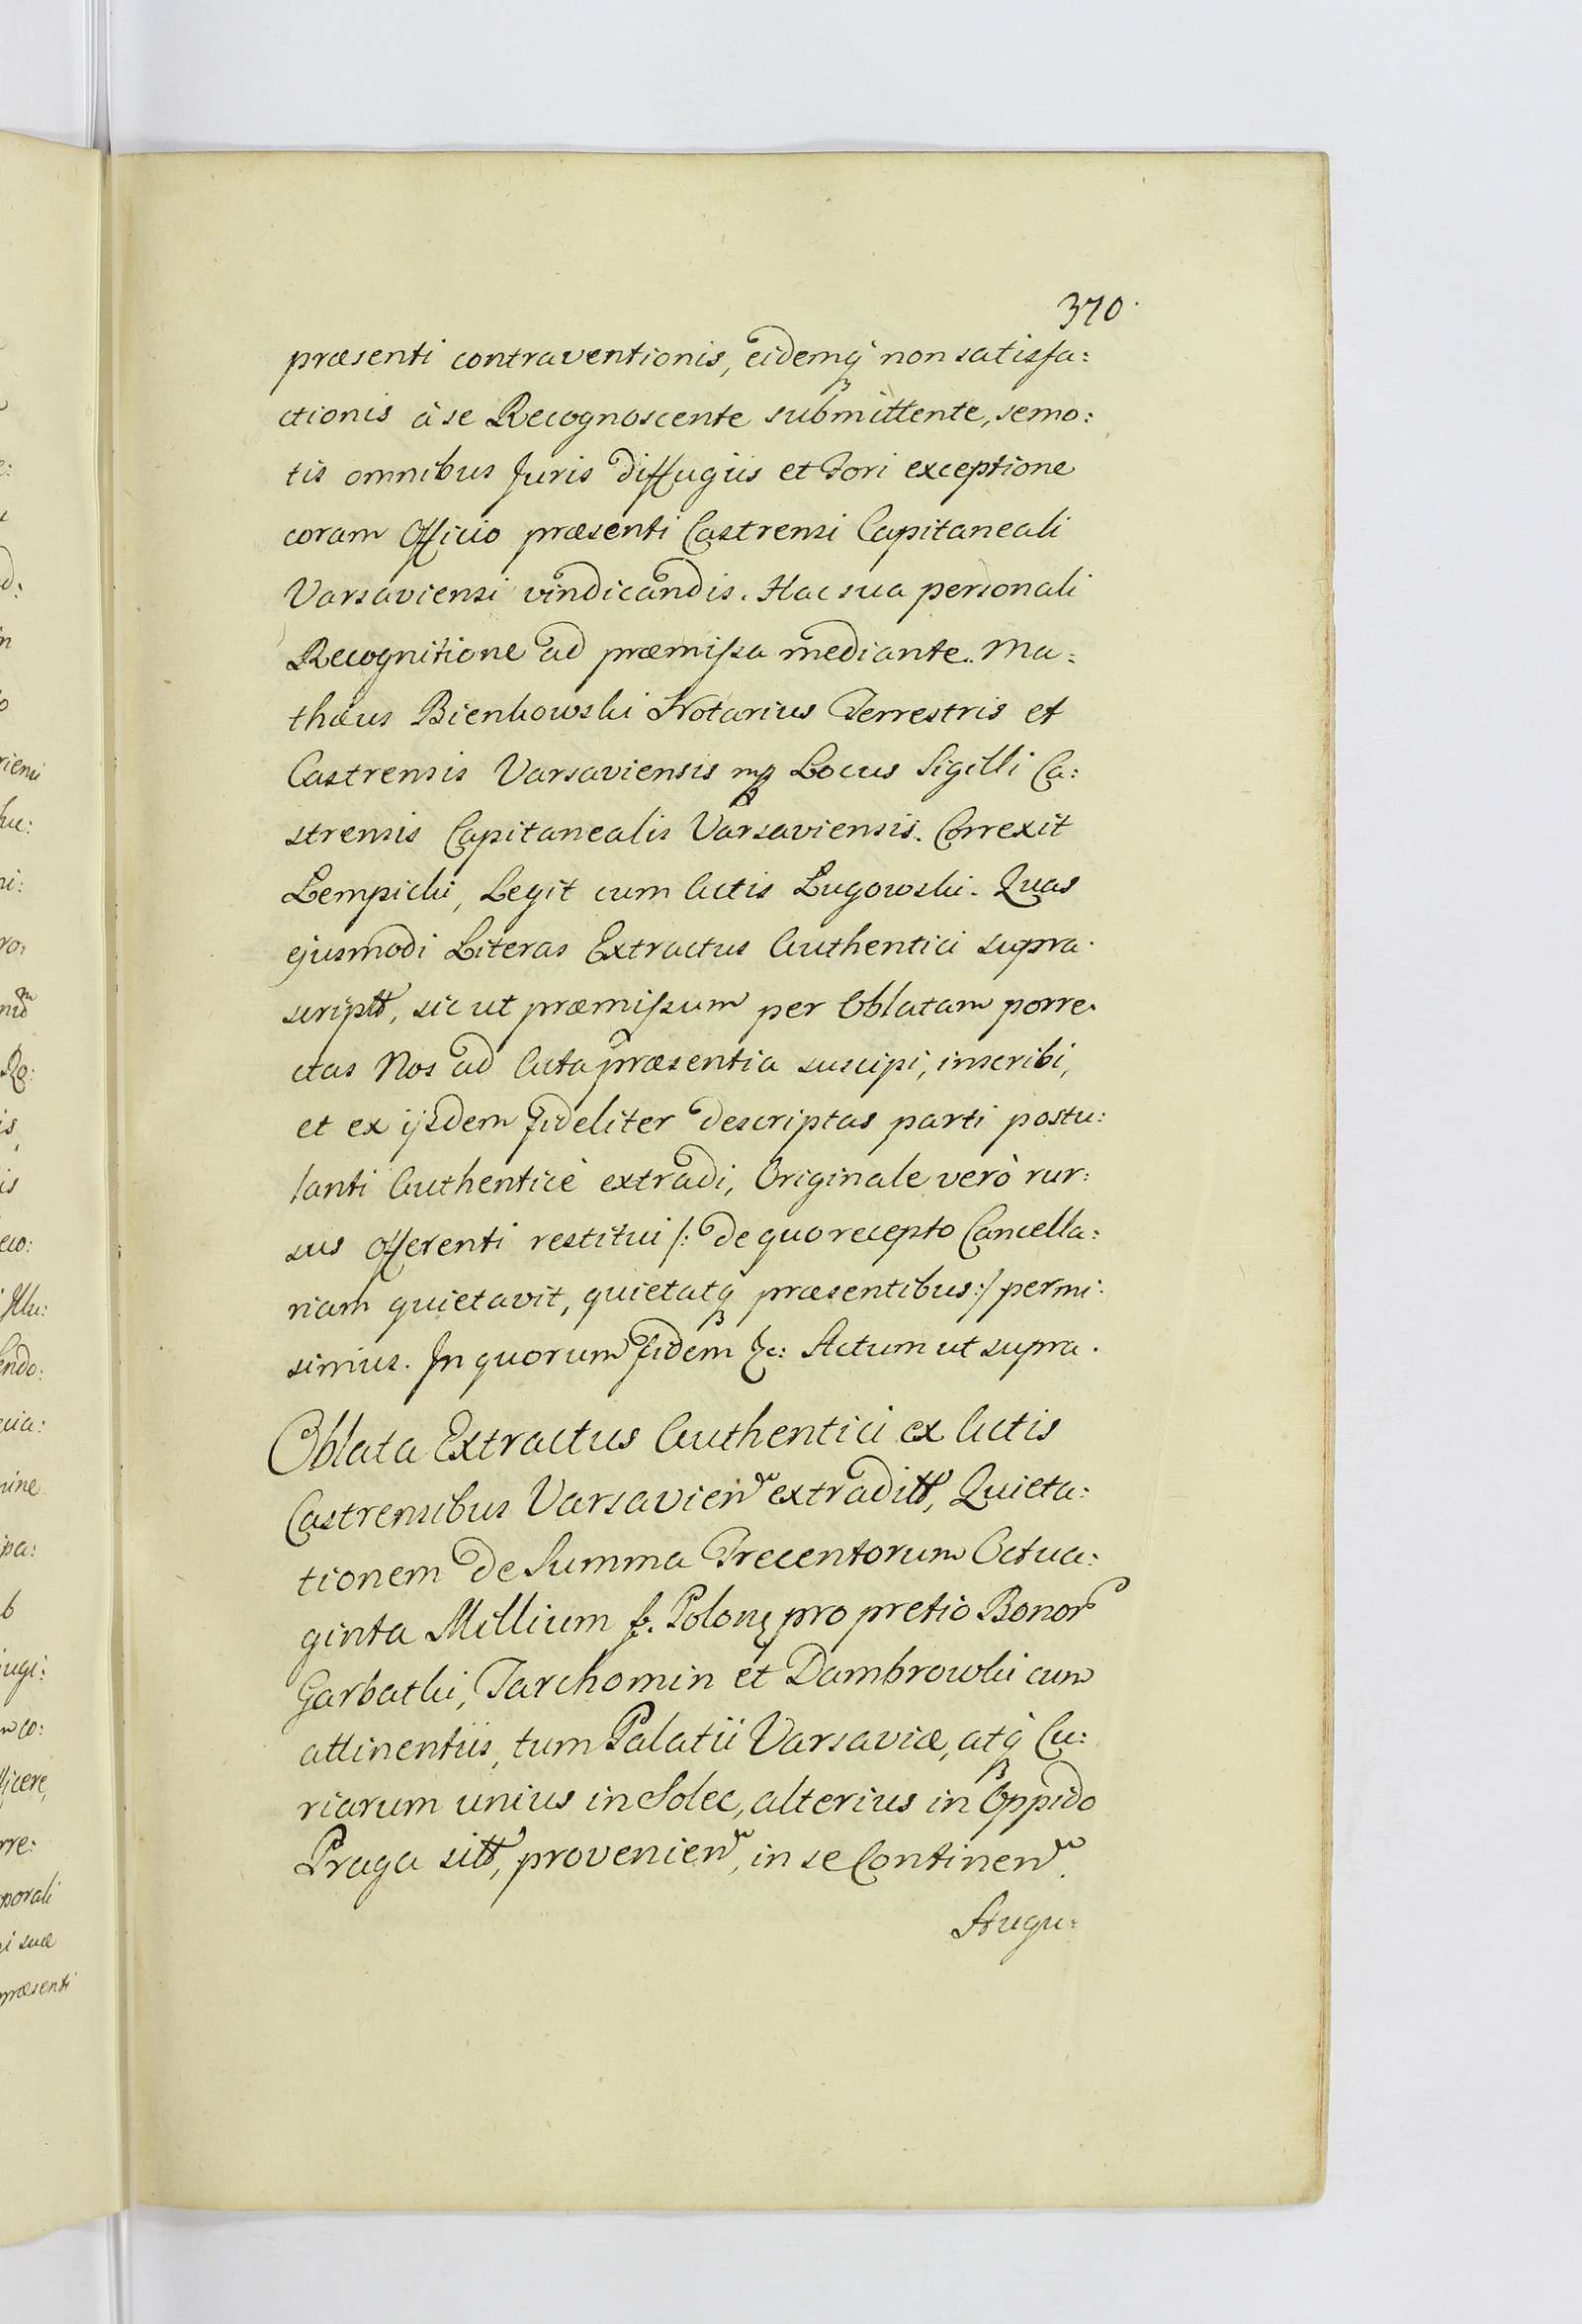 370.
præsenti contraventionis, eidemq non satisfa:
ctionis à se Recognoscente submittente, semo:
tis omnibus Juris diffugiis et Fori exceptione
coram Officio præsenti Castrensi Capitaneali
Varsaviensi vindicandis. Hac sua personali
Recognitione ad præmissa mediante. Ma:
thæus Bienkowski Notarius Terrestris et
Castrensis Varsaviensis mp Locus Sigilli Ca:
strensis Capitanealis Varsaviensis. Correxit
Lempicki, Legit cum Actis Lugowski. Quas
ejusmodi Literas Extractus Authentici supra.
scriptt, sic ut præmissum per Oblatam porre.
ctas Nos ad Acta præsentia suscipi, inscribi,
et ex ijsdem fideliter descriptas parti postu:
lanti Authenticè extradi, Originale verò rur:
sus offerenti restitui /: de quo recepto Cancella:
riam quietavit, quietatq præsentibus :/ permi:
simus. In quorum fidem &c: Actum ut supra.
Oblata Extractus Authentici ex Actis
Castrensibus Varsavien extraditt, Quieta:
tionem de Summa Trecentorum Octua:
ginta Millium f. Polon pro pretio Bonor
Garbatki, Tarchomin et Dambrowki cum
attinentiis, tum Palatii Varsaviæ, atq Cu:
riarum unius in Solec, alterius in Oppido
Praga sitt, provenien, in se Continen.
Augu:
riensi
præsenti
porali
i suæ
ugi:
nine
pa:
ndo: